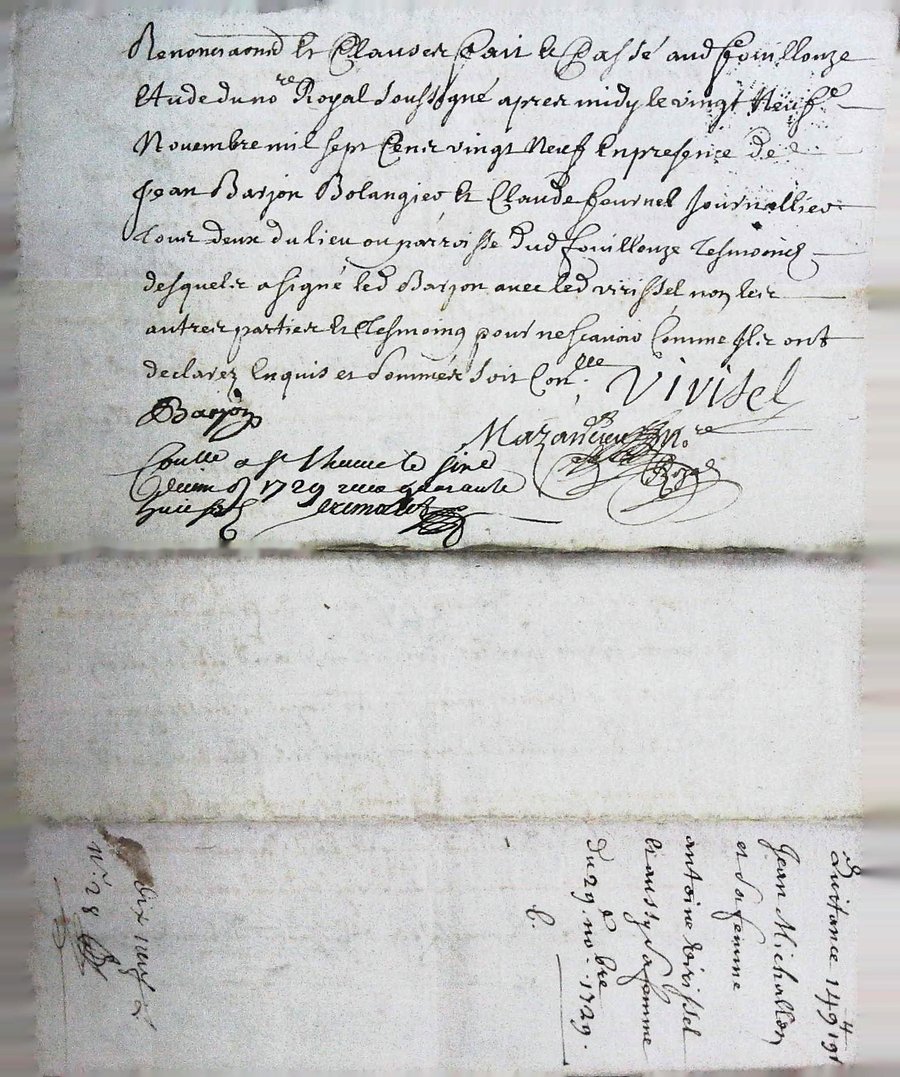 Renonciaond et Clauses Fait et Passé aud fouillouze
Etude du no.re Royal soussigné apres midy le vingt Neuf.e
Novembre mil sept Cens vingt Neuf En presence de
Jean Barjon Bolangier et Claude fournel Journallier
tous deux du lieu ou parroisse dud fouillouze Tesmoins
desquels a signé led Barjon avec led virissel non les
autres parties et tesmoins pour ne scavoir Comme Ils ont
declarez Enquis et sommés soit Con.lle
Vivisel
Barjon
Mazancieu No.re
Royal
a St
1729 reçu quarante
huit
Quitance 149
Jean Michallon
et sa femme
antoine virissel
et aussy sa femme
du 29.e no.bre 1729.
C.
dix neuf
n.o 28